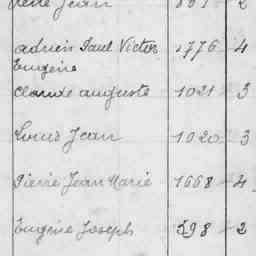 René Jean 861 2
Adrien Paul Victor 1776 4
Eugène
Claude Auguste 1021 3
Louis Jean 1020 3
Pierre Jean Marie 1668 4
Eugène Joseph 598 2